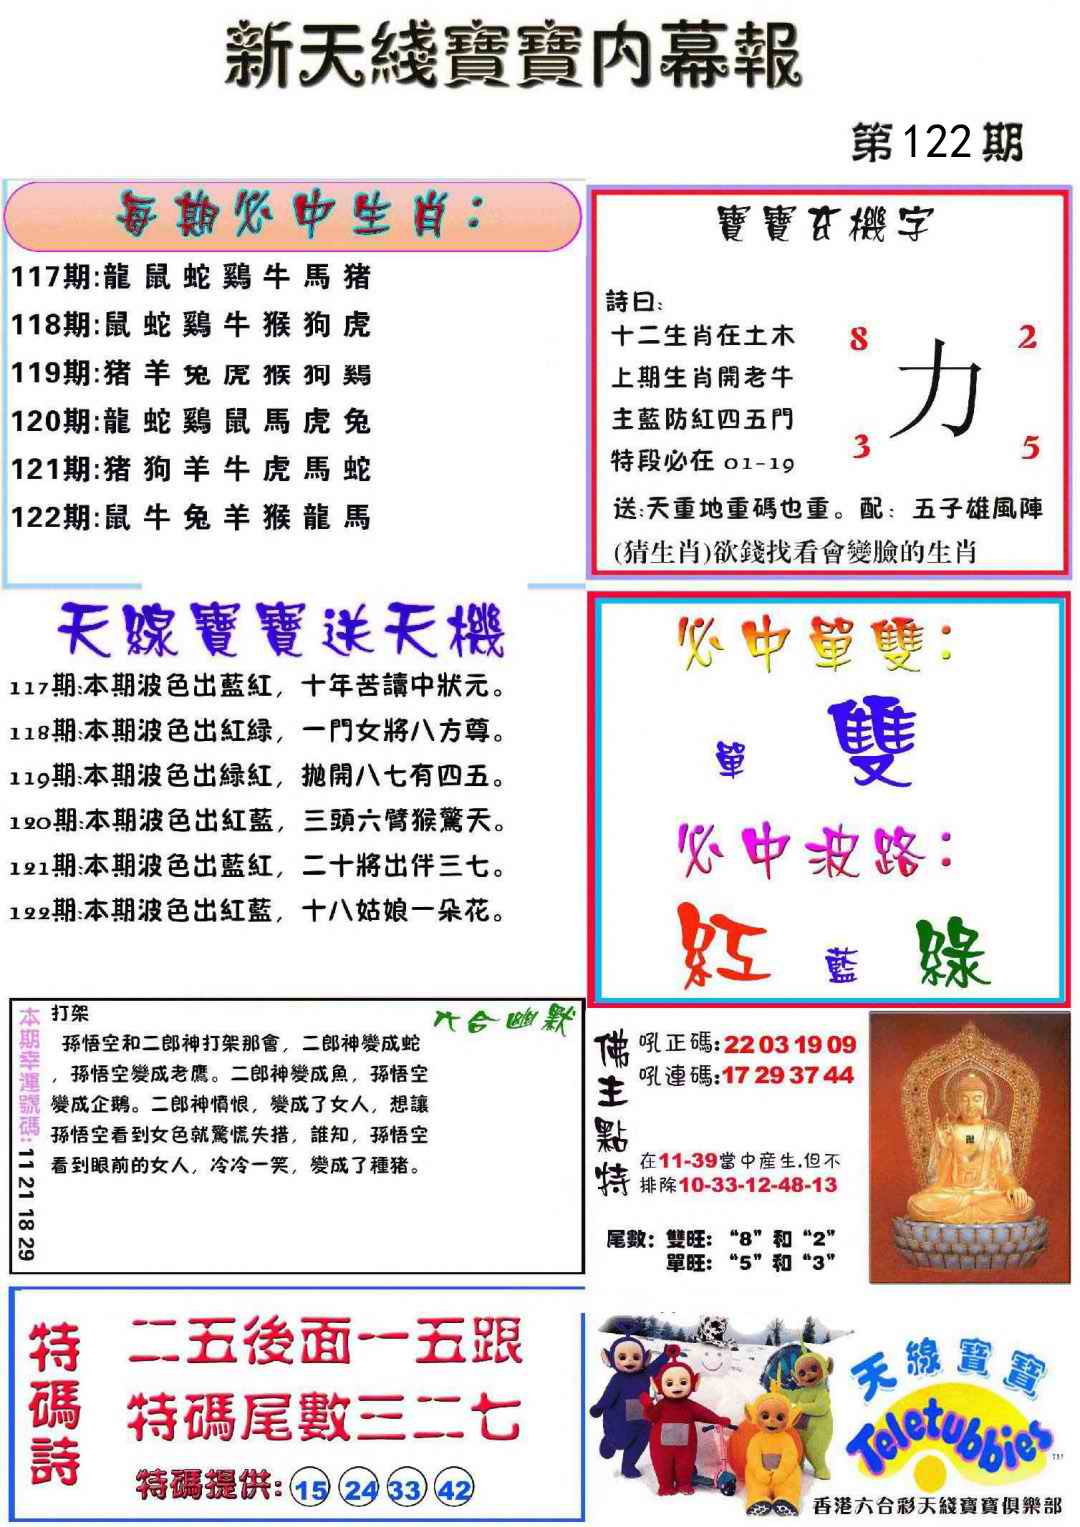 新天綫寶寶内幕報
第122期
每期必中生肖：
117期:龍鼠蛇鷄牛馬猪
118期:鼠蛇鷄牛猴狗虎
119期:猪羊兔虎猴狗鷄
120期:龍蛇鷄鼠馬虎兔
121期:猪狗羊牛虎馬蛇
122期:鼠牛兔羊猴龍馬
寶寶玄機字
詩曰:
十二生肖在土木
上期生肖開老牛
主藍防紅四五門
特段必在 01-19
8 2
力
3 5
送:天重地重碼也重。配：五子雄風陣
(猜生肖)欲錢找看會變臉的生肖
天線寶寶送天機
117期:本期波色出藍紅，十年苦讀中狀元。
118期:本期波色出紅绿，一門女將八方尊。
119期:本期波色出緑紅，抛開八七有四五。
120期:本期波色出紅藍，三頭六臂猴驚天。
121期:本期波色出藍紅，二十將出伴三七。
122期:本期波色出紅藍，十八姑娘一朵花。
必中單雙：
單 雙
必中波路：
紅 藍 綠
本期幸運號碼: 11 21 18 29
六合幽默
打架
孫悟空和二郎神打架那會，二郎神變成蛇
，孫悟空變成老鷹。二郎神變成魚，孫悟空
變成企鵝。二郎神憤恨，變成了女人，想讓
孫悟空看到女色就驚慌失措，誰知，孫悟空
看到眼前的女人，冷冷一笑，變成了種猪。
佛主點特
吼正碼:22 03 19 09
吼連碼:17 29 37 44
在11-39當中産生.但不
排除10-33-12-48-13
尾數：雙旺：“8”和“2”
單旺：“5”和“3”
特碼詩
二五後面一五跟
特碼尾數三二七
特碼提供: 15 24 33 42
天線寶寶
Teletubbies™
香港六合彩天綫寶寶俱樂部